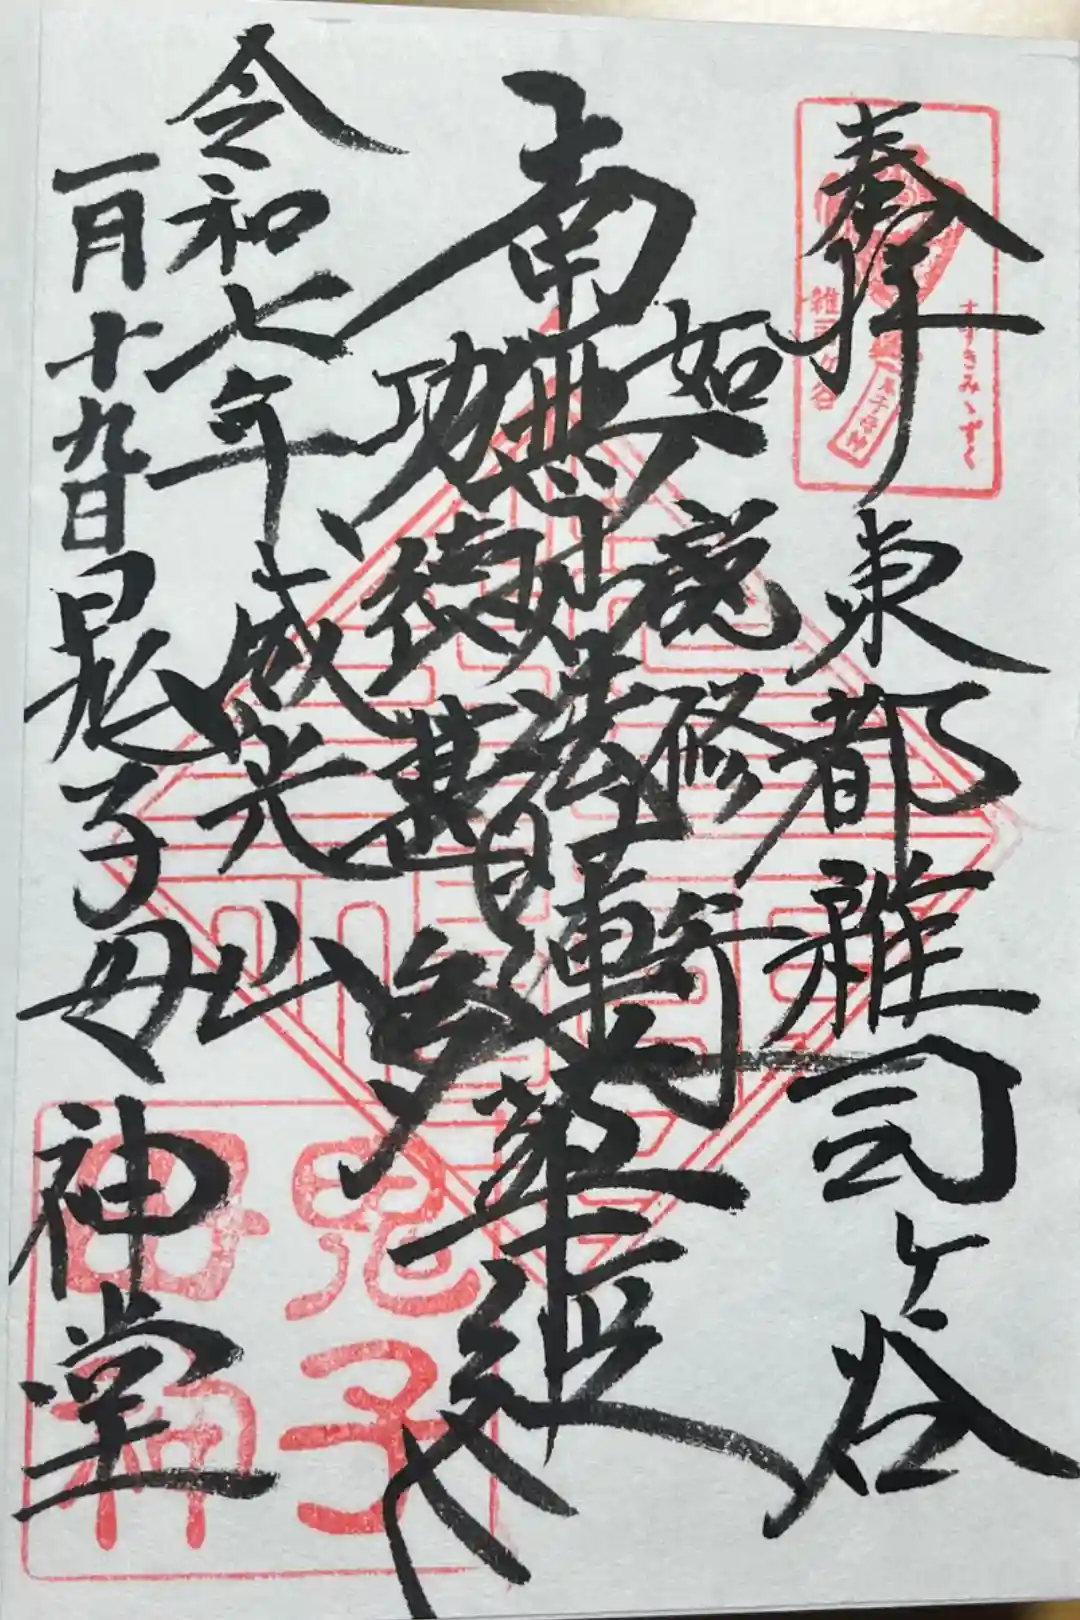 奉拝
東都雑司ヶ谷
すすきみゝずく
雑司ヶ谷
如説修行
南無妙法蓮華経
功徳甚多
威光山
令和七年
一月十九日
鬼子母神堂
鬼子
母神